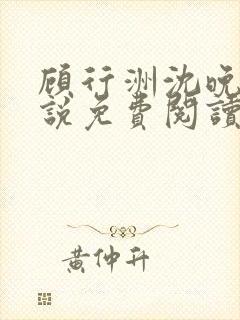 顾行洲沈晚
說免費閱讀
黃仲升